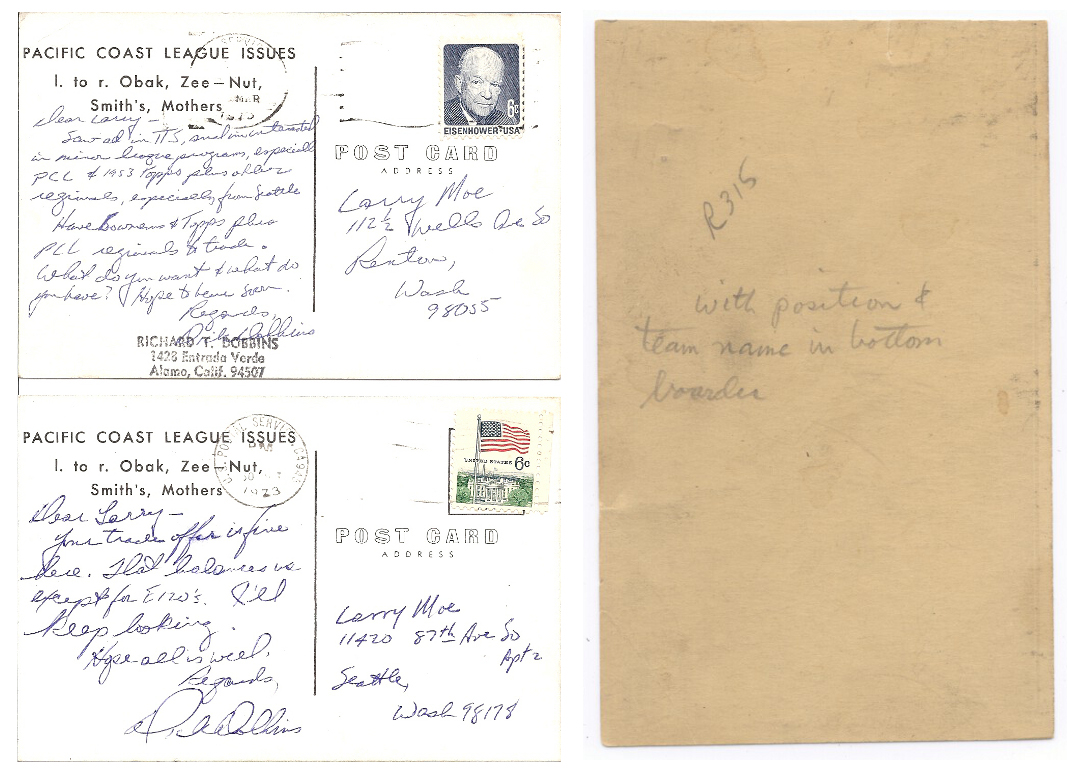 PACIFIC COAST LEAGUE ISSUES
l. to r. Obak, Zee-Nut,
Smith's, Mothers
MAR
1973
Dear Larry -
Saw ad in TTS, and am interested
in minor league programs, especially
PCL & 1953 Topps plus other
regionals, especially from Seattle
Have Bowmans & Topps plus
PCL regionals to trade.
What do you want & what do
you have? Hope to hear soon.
Regards,
Dick Dobbins
RICHARD T. DOBBINS
1428 Entrada Verde
Alamo, Calif. 94507
6c
EISENHOWER·USA
POST CARD
ADDRESS
Larry Moe
112½ Wells Ave So
Renton,
Wash
98055
PACIFIC COAST LEAGUE ISSUES
l. to r. Obak, Zee-Nut,
Smith's, Mothers
POSTAL SERVICE
PM
1973
Dear Larry -
Your trade offer is fine
here. That balances us
except for E120's. I'll
keep looking.
Hope all is well.
Regards,
Dick Dobbins
UNITED STATES 6c
POST CARD
ADDRESS
Larry Moe
11420 87th Ave So
Apt 2
Seattle,
Wash 98178
R316
with position &
team name in bottom
boarder